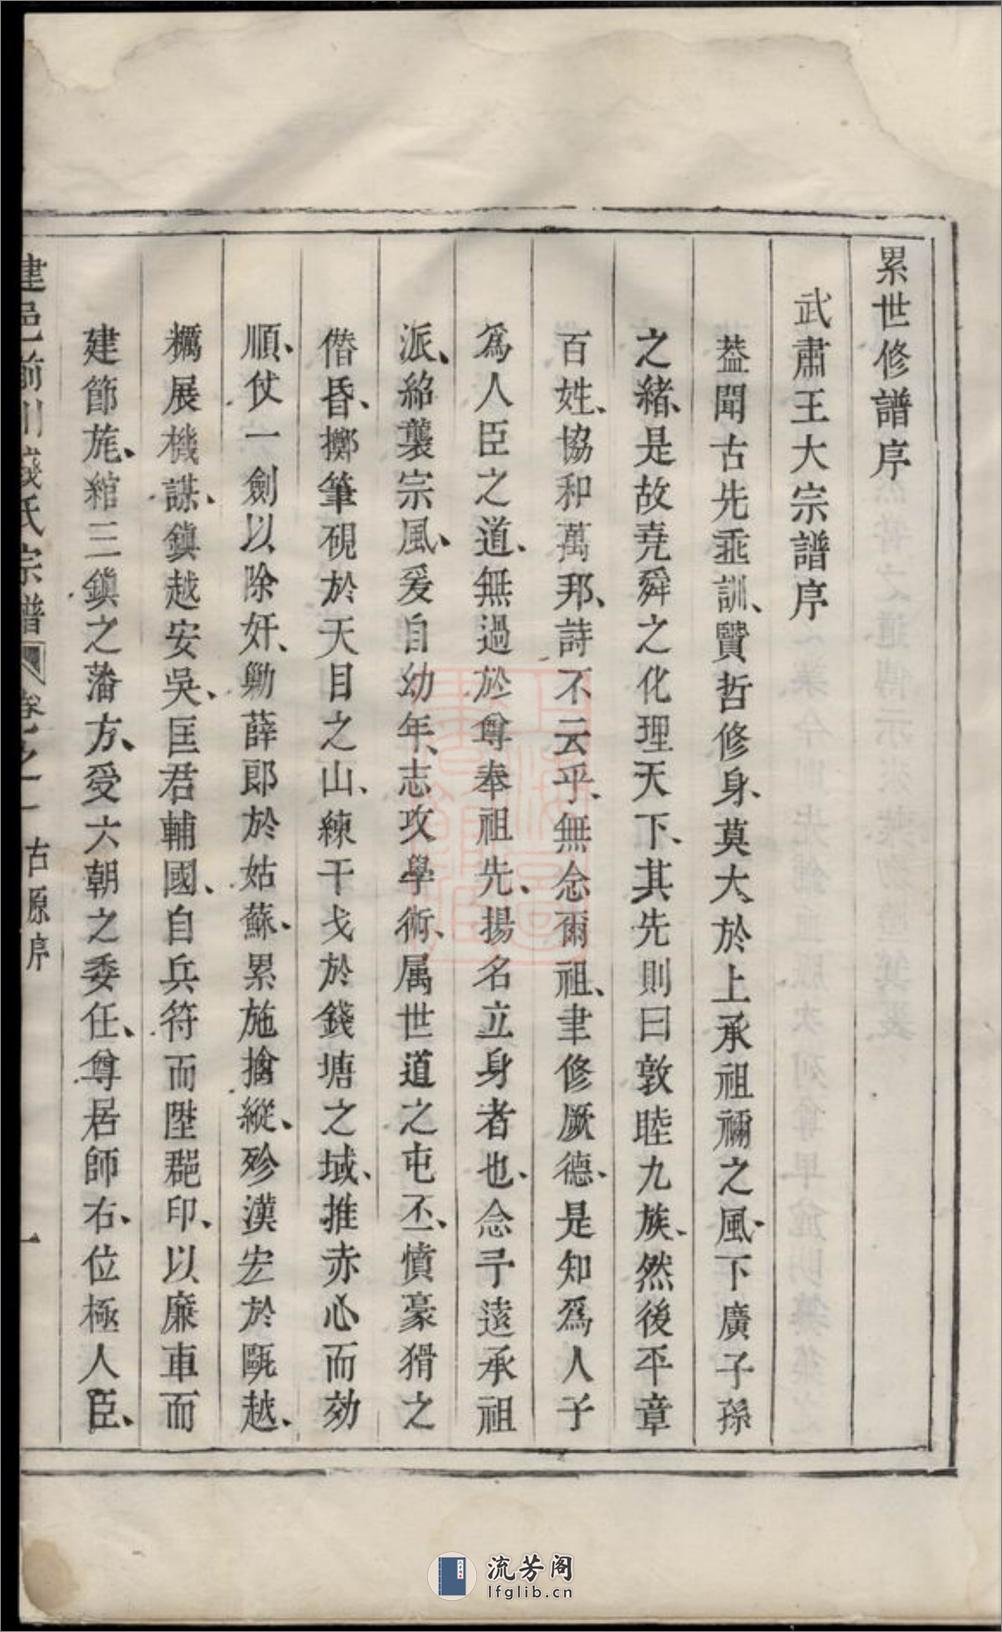 累世修譜序
武肅王大宗譜序
葢聞古先垂訓、賢哲修身、莫大於上承祖禰之風、下廣子孫
之緒、是故堯舜之化理天下、其先則曰敦睦九族、然後平章
百姓、協和萬邦、詩不云乎、無念爾祖、聿修厥德、是知爲人子
爲人臣之道、無過於尊奉祖先、揚名立身者也、念予遠承祖
派、紹襲宗風、爰自幼年、志攻學術、属世道之屯丕、憤豪猾之
僭昏、擲筆硯於天目之山、練干戈於錢塘之域、推赤心而効
順、仗一劍以除奸、勦薛郎於姑蘇、累施擒縱、殄漢宏於甌越、
糲展機謀、鎮越安吳、匡君輔國、自兵符而陞郡印、以廉車而
建節旄、綰三鎮之藩方、受六朝之委任、尊居師右、位極人臣、
建邑前川錢氏宗譜 卷之一 古原序 一
流芳阁
lfglib.cn